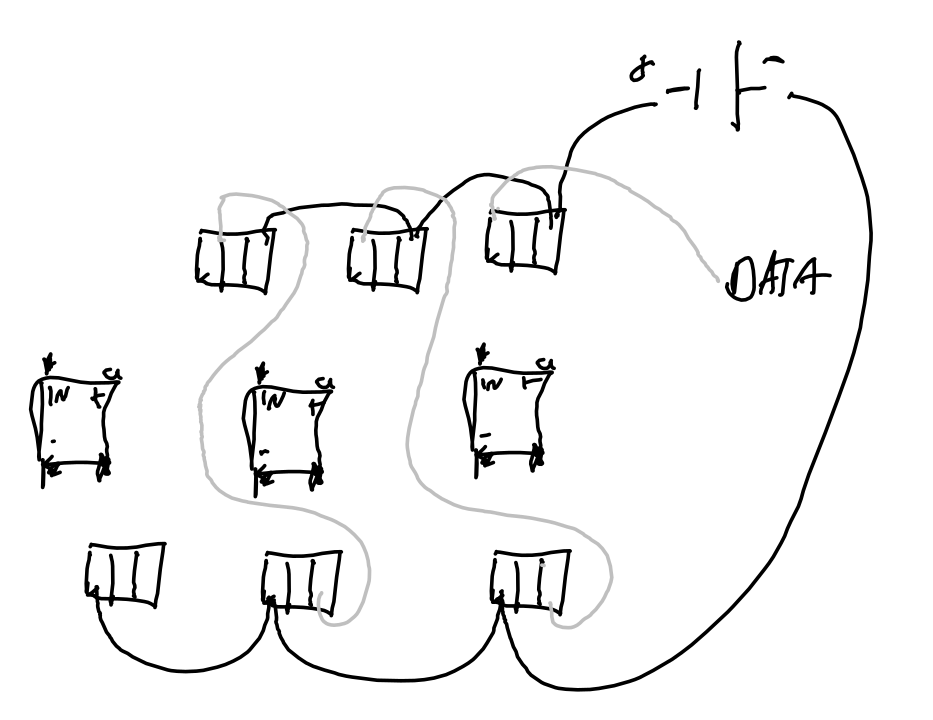 + -
DATA
IN +
IN +
IN +
-
-
-